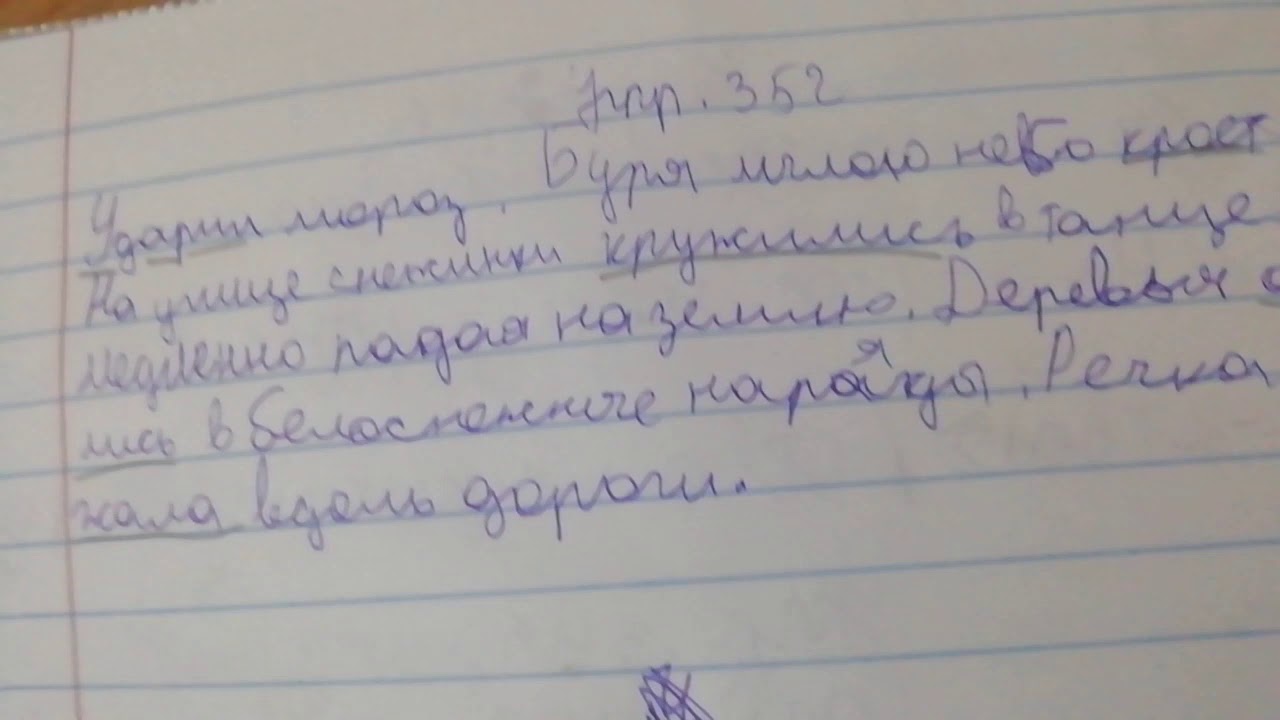 Упр. 352
Ударил мороз. Буря мглою небо кроет
На улице снежинки кружились в танце
медленно падая на землю. Деревья
лись в белоснежные наряды. Речка
жала вдоль дороги.